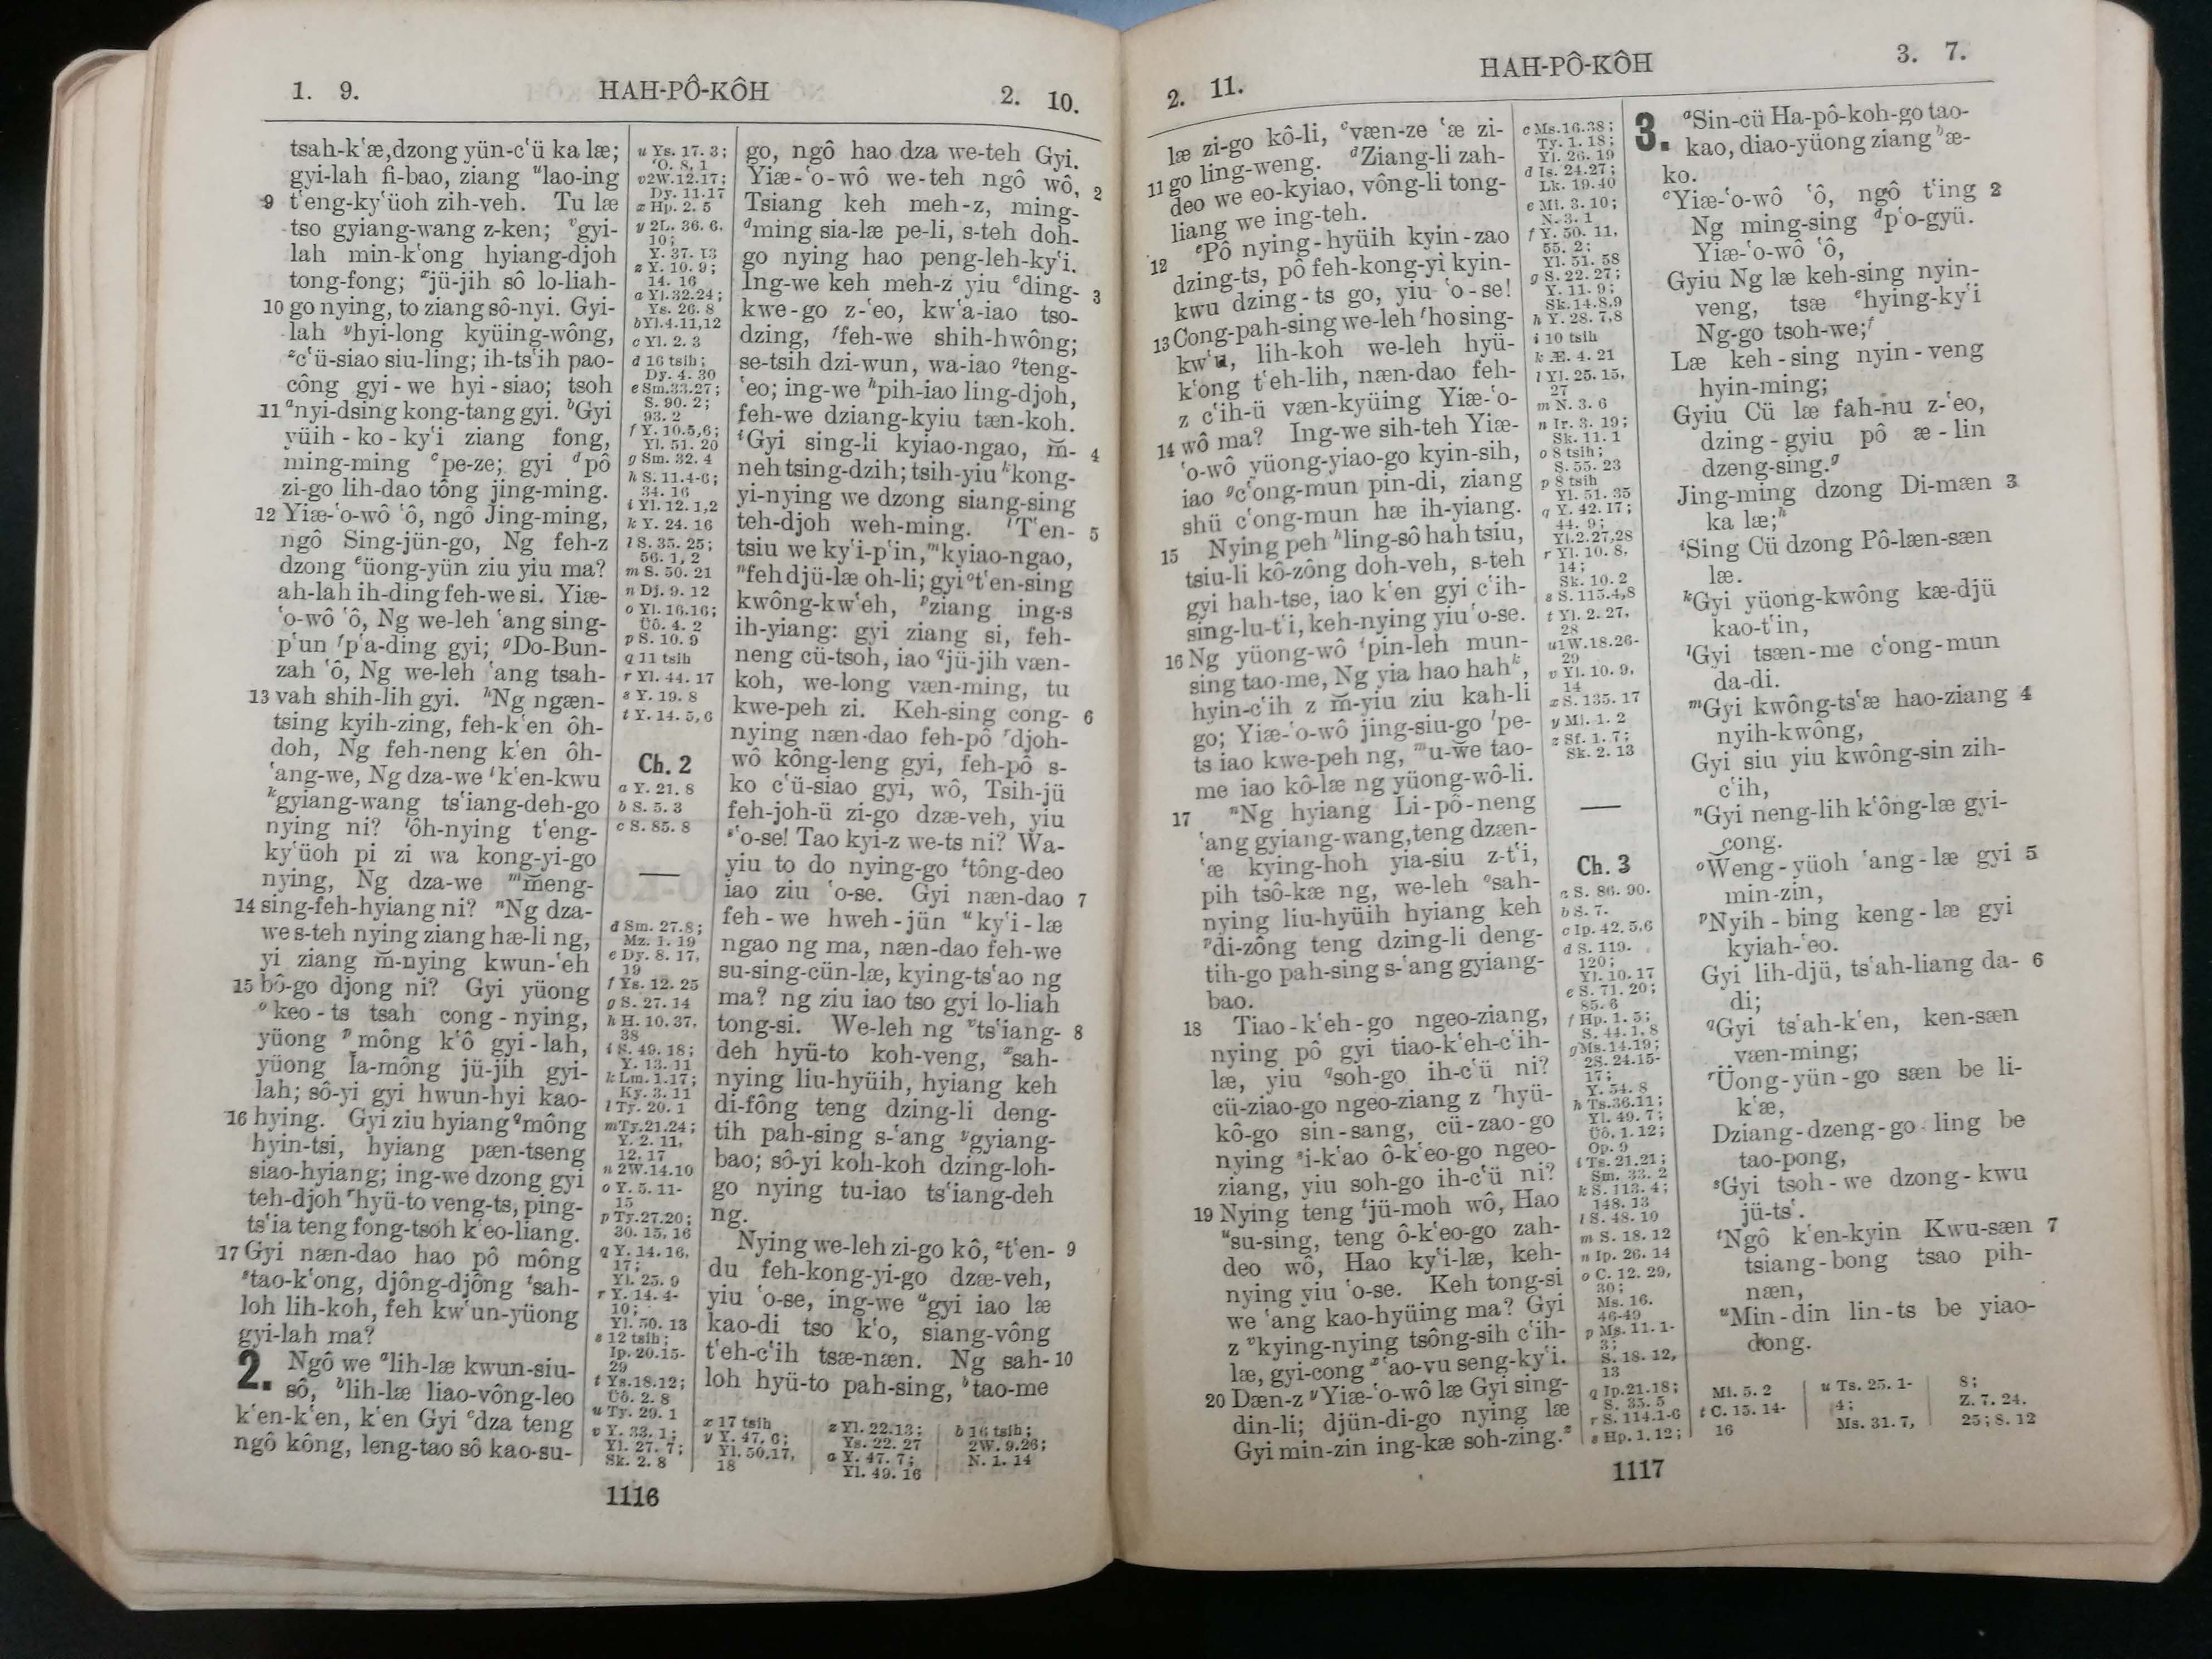 1. 9. HAH-PÔ-KÔH 2. 10.
tsah-k‘æ,dzong yün-c‘ü ka læ;
gyi-lah fi-bao, ziang ᵘlao-ing
9 t‘eng-ky‘üoh zih-veh. Tu læ
tso gyiang-wang z-ken; ᵛgyi-
lah min-k‘ong hyiang-djoh
tong-fong; ˣjü-jih sô lo-liah-
10 go nying, to ziang sô-nyi. Gyi-
lah ʸhyi-long kyüing-wông,
ᶻc‘ü-siao siu-ling; ih-ts‘ih pao-
công gyi-we hyi-siao; tsoh
11 ᵃnyi-dsing kong-tang gyi. ᵇGyi
yüih-ko-ky‘i ziang fong,
ming-ming ᶜpe-ze; gyi ᵈpô
zi-go lih-dao tông jing-ming.
12 Yiæ-‘o-wô ‘ô, ngô Jing-ming,
ngô Sing-jün-go, Ng feh-z
dzong ᵉüong-yün ziu yiu ma?
ah-lah ih-ding feh-we si. Yiæ-
‘o-wô ‘ô, Ng we-leh ‘ang sing-
p‘un ᶠp‘a-ding gyi; ᵍDo-Bun-
zah ‘ô, Ng we-leh ‘ang tsah-
13 vah shih-lih gyi. ʰNg ngæn-
tsing kyih-zing, feh-k‘en ôh-
doh, Ng feh-neng k‘en ôh-
‘ang-we, Ng dza-we ⁱk‘en-kwu
ᵏgyiang-wang ts‘iang-deh-go
nying ni? ˡôh-nying t‘eng-
ky‘üoh pi zi wa kong-yi-go
nying, Ng dza-we ᵐm̆eng-
14 sing-feh-hyiang ni? ⁿNg dza-
we s-teh nying ziang hæ-li ng,
yi ziang m̆-nying kwun-‘eh
15 bô-go djong ni? Gyi yüong
ᵒkeo-ts tsah cong-nying,
yüong ᵖmông k‘ô gyi-lah,
yüong la-mông jü-jih gyi-
lah; sô-yi gyi hwun-hyi kao-
16 hying. Gyi ziu hyiang ᑫmông
hyin-tsi, hyiang pæn-tseng
siao-hyiang; ing-we dzong gyi
teh-djoh ʳhyü-to veng-ts, ping-
ts‘ia teng fong-tsoh k‘eo-liang.
17 Gyi næn-dao hao pô mông
ˢtao-k‘ong, djông-djông ᵗsah-
loh lih-koh, feh kw‘un-yüong
gyi-lah ma?
2. Ngô we ᵃlih-læ kwun-siu-
sô, ᵇlih-læ liao-vông-leo
k‘en-k‘en, k‘en Gyi ᶜdza teng
ngô kông, leng-tao sô kao-su-
u Ys. 17. 3;
‘O. 8, 1
v2W.12.17;
Dy. 11.17
x Hp. 2. 5
y 2L. 36. 6,
10;
Y. 37. 13
z Y. 10. 9;
14. 16
a Yl.32.24;
Ys. 26. 8
bYl.4.11,12
c Yl. 2. 3
d 16 tsih;
Dy. 4. 30
e Sm.33.27;
S. 90. 2;
93. 2
f Y. 10.5,6;
Yl. 51. 20
g Sm. 32. 4
h S. 11.4-6;
34. 16
i Yl. 12. 1,2
k Y. 24. 16
l S. 35. 25;
56. 1, 2
m S. 50. 21
n Dj. 9. 12
o Yl. 16.16;
Üô. 4. 2
p S. 10. 9
q 11 tsih
r Yl. 44. 17
s Y. 19. 8
t Y. 14. 5,6
Ch. 2
a Y. 21. 8
b S. 5. 3
c S. 85. 8
d Sm. 27.8;
Mz. 1. 19
e Dy. 8. 17,
19
f Ys. 12. 25
g S. 27. 14
h H. 10. 37,
38
i S. 49. 18;
Y. 13. 11
k Lm. 1.17;
Ky. 3. 11
l Ty. 20. 1
mTy.21.24;
Y. 2. 11,
12. 17
n 2W.14.10
o Y. 5. 11-
15
p Ty.27.20;
30. 15, 16
q Y. 14. 16,
17;
Yl. 25. 9
r Y. 14. 4-
10;
Yl. 50. 13
s 12 tsih;
Ip. 20.15-
29
t Ys.18.12;
Üô. 2. 8
u Ty. 29. 1
v Y. 33. 1;
Yl. 27. 7;
Sk. 2. 8
go, ngô hao dza we-teh Gyi.
Yiæ-‘o-wô we-teh ngô wô, 2
Tsiang keh meh-z, ming-
ᵈming sia-læ pe-li, s-teh doh-
go nying hao peng-leh-ky‘i.
Ing-we keh meh-z yiu ᵉding- 3
kwe-go z-‘eo, kw‘a-iao tso-
dzing, ᶠfeh-we shih-hwông;
se-tsih dzi-wun, wa-iao ᵍteng-
‘eo; ing-we ʰpih-iao ling-djoh,
feh-we dziang-kyiu tæn-koh.
ⁱGyi sing-li kyiao-ngao, m̆- 4
neh tsing-dzih; tsih-yiu ᵏkong-
yi-nying we dzong siang-sing
teh-djoh weh-ming. ˡT‘en- 5
tsiu we ky‘i-p‘in, ᵐkyiao-ngao,
ⁿfeh djü-læ oh-li; gyi ᵒt‘en-sing
kwông-kw‘eh, ᵖziang ing-s
ih-yiang: gyi ziang si, feh-
neng cü-tsoh, iao ᑫjü-jih væn-
koh, we-long væn-ming, tu
kwe-peh zi. Keh-sing cong- 6
nying næn-dao feh-pô ʳdjoh-
wô kông-leng gyi, feh-pô s-
ko c‘ü-siao gyi, wô, Tsih-jü
feh-joh-ü zi-go dzæ-veh, yiu
ˢ‘o-se! Tao kyi-z we-ts ni? Wa-
yiu to do nying-go ᵗtông-deo
iao ziu ‘o-se. Gyi næn-dao 7
feh-we hweh-jün ᵘky‘i-læ
ngao ng ma, næn-dao feh-we
su-sing-cün-læ, kying-ts‘ao ng
ma? ng ziu iao tso gyi lo-liah
tong-si. We-leh ng ᵛts‘iang- 8
deh hyü-to koh-veng, ˣsah-
nying liu-hyüih, hyiang keh
di-fông teng dzing-li deng-
tih pah-sing s-‘ang ʸgyiang-
bao; sô-yi koh-koh dzing-loh-
go nying tu-iao ts‘iang-deh
ng.
Nying we-leh zi-go kô, ᶻt‘en- 9
du feh-kong-yi-go dzæ-veh,
yiu ‘o-se, ing-we ᵃgyi iao læ
kao-di tso k‘o, siang-vông
t‘eh-c‘ih tsæ-næn. Ng sah- 10
loh hyü-to pah-sing, ᵇtao-me
x 17 tsih
y Y. 47. 6;
Yl. 50.17,
18
z Yl. 22.13;
Ys. 22. 27
a Y. 47. 7;
Yl. 49. 16
b 16 tsih;
2W. 9.26;
N. 1. 14
1116
2. 11. HAH-PÔ-KÔH 3. 7.
læ zi-go kô-li, ᶜvæn-ze ‘æ zi-
11 go ling-weng. ᵈZiang-li zah-
deo we eo-kyiao, vông-li tong-
liang we ing-teh.
12 ᵉPô nying-hyüih kyin-zao
dzing-ts, pô feh-kong-yi kyin-
kwu dzing-ts go, yiu ‘o-se!
13 Cong-pah-sing we-leh ᶠho sing-
kw‘u, lih-koh we-leh hyü-
k‘ong t‘eh-lih, næn-dao feh-
z c‘ih-ü væn-kyüing Yiæ-‘o-
14 wô ma? Ing-we sih-teh Yiæ-
‘o-wô yüong-yiao-go kyin-sih,
iao ᵍc‘ong-mun pin-di, ziang
shü c‘ong-mun hæ ih-yiang.
15 Nying peh ʰling-sô hah tsiu,
tsiu-li kô-zông doh-veh, s-teh
gyi hah-tse, iao k‘en gyi c‘ih-
sing-lu-t‘i, keh-nying yiu ‘o-se.
16 Ng yüong-wô ⁱpin-leh mun-
sing tao-me, Ng yia hao hah ᵏ,
hyin-c‘ih z m̆-yiu ziu kah-li
go; Yiæ-‘o-wô jing-siu-go ˡpe-
ts iao kwe-peh ng, ᵐu-w̆e tao-
me iao kô-læ ng yüong-wô-li.
17 ⁿNg hyiang Li-pô-neng
‘ang gyiang-wang,teng dzæn-
‘æ kying-hoh yia-siu z-t‘i,
pih tsô-kæ ng, we-leh ᵒsah-
nying liu-hyüih hyiang keh
ᵖdi-zông teng dzing-li deng-
tih-go pah-sing s-‘ang gyiang-
bao.
18 Tiao-k‘eh-go ngeo-ziang,
nying pô gyi tiao-k‘eh-c‘ih-
læ, yiu ᑫsoh-go ih-c‘ü ni?
cü-ziao-go ngeo-ziang z ʳhyü-
kô-go sin-sang, cü-zao-go
nying ˢi-k‘ao ô-k‘eo-go ngeo-
ziang, yiu soh-go ih-c‘ü ni?
19 Nying teng ᵗjü-moh wô, Hao
ᵘsu-sing, teng ô-k‘eo-go zah-
deo wô, Hao ky‘i-læ, keh-
nying yiu ‘o-se. Keh tong-si
we ‘ang kao-hyüing ma? Gyi
z ᵛkying-nying tsông-sih c‘ih-
læ, gyi-cong ˣ‘ao-vu seng-ky‘i.
20 Dæn-z ʸYiæ-‘o-wô læ Gyi sing-
din-li; djün-di-go nying læ
Gyi min-zin ing-kæ soh-zing.ᶻ
c Ms.16.38;
Ty. 1. 18;
Yl. 26. 19
d Is. 24.27;
Lk. 19.40
e Ml. 3. 10;
N. 3. 1
f Y. 50. 11,
55. 2;
Yl. 51. 58
g S. 22. 27;
Y. 11. 9;
Sk.14.8,9
h Y. 28. 7,8
i 10 tsih
k Æ. 4. 21
l Yl. 25. 15,
27
m N. 3. 6
n Ir. 3. 19;
Sk. 11. 1
o 8 tsih;
S. 55. 23
p 8 tsih
Yl. 51. 35
q Y. 42. 17;
44. 9;
Yl.2.27,28
r Yl. 10. 8,
14;
Sk. 10. 2
s S. 115.4,8
t Yl. 2. 27,
28
u1W.18.26-
29
v Yl. 10. 9,
14
x S. 135. 17
y Ml. 1. 2
z Sf. 1. 7;
Sk. 2. 13
Ch. 3
a S. 86. 90.
b S. 7.
c Ip. 42. 5,6
d S. 119.
120;
Yl. 10. 17
e S. 71. 20;
85. 6
f Hp. 1. 5;
S. 44. 1, 8
gMs.14.19;
2S. 24.15-
17;
Y. 54. 8
h Ts.36.11;
Yl. 49. 7;
Üô. 1. 12;
Op. 9
i Ts. 21.21;
Sm. 33. 2
k S. 113. 4;
148. 13
l S. 48. 10
m S. 18. 12
n Ip. 26. 14
o C. 12. 29,
30;
Ms. 16.
46-49
p Ms. 11. 1-
3;
S. 18. 12,
13
q Ip.21.18;
S. 35. 5
r S. 114.1-6
s Hp. 1. 12;
3. ᵃSin-cü Ha-pô-koh-go tao-
kao, diao-yüong ziang ᵇæ-
ko.
ᶜYiæ-‘o-wô ‘ô, ngô t‘ing 2
Ng ming-sing ᵈp‘o-gyü.
Yiæ-‘o-wô ‘ô,
Gyiu Ng læ keh-sing nyin-
veng, tsæ ᵉhying-ky‘i
Ng-go tsoh-we;ᶠ
Læ keh-sing nyin-veng
hyin-ming;
Gyiu Cü læ fah-nu z-‘eo,
dzing-gyiu pô æ-lin
dzeng-sing.ᵍ
Jing-ming dzong Di-mæn 3
ka læ;ʰ
ⁱSing Cü dzong Pô-læn-sæn
læ.
ᵏGyi yüong-kwông kæ-djü
kao-t‘in,
ˡGyi tsæn-me c‘ong-mun
da-di.
ᵐGyi kwông-ts‘æ hao-ziang 4
nyih-kwông,
Gyi siu yiu kwông-sin zih-
c‘ih,
ⁿGyi neng-lih k‘ông-læ gyi-
cong.
ᵒWeng-yüoh ‘ang-læ gyi 5
min-zin,
ᵖNyih-bing keng-læ gyi
kyiah-‘eo.
Gyi lih-djü, ts‘ah-liang da- 6
di;
ᑫGyi ts‘ah-k‘en, ken-sæn
væn-ming;
ʳÜong-yün-go sæn be li-
k‘æ,
Dziang-dzeng-go ling be
tao-pong,
ˢGyi tsoh-we dzong-kwu
jü-ts‘.
ᵗNgô k‘en-kyin Kwu-sæn 7
tsiang-bong tsao pih-
næn,
ᵘMin-din lin-ts be yiao-
dong.
Ml. 5. 2
t C. 15. 14-
16
u Ts. 25. 1-
4;
Ms. 31. 7,
8;
Z. 7. 24.
25; S. 12
1117